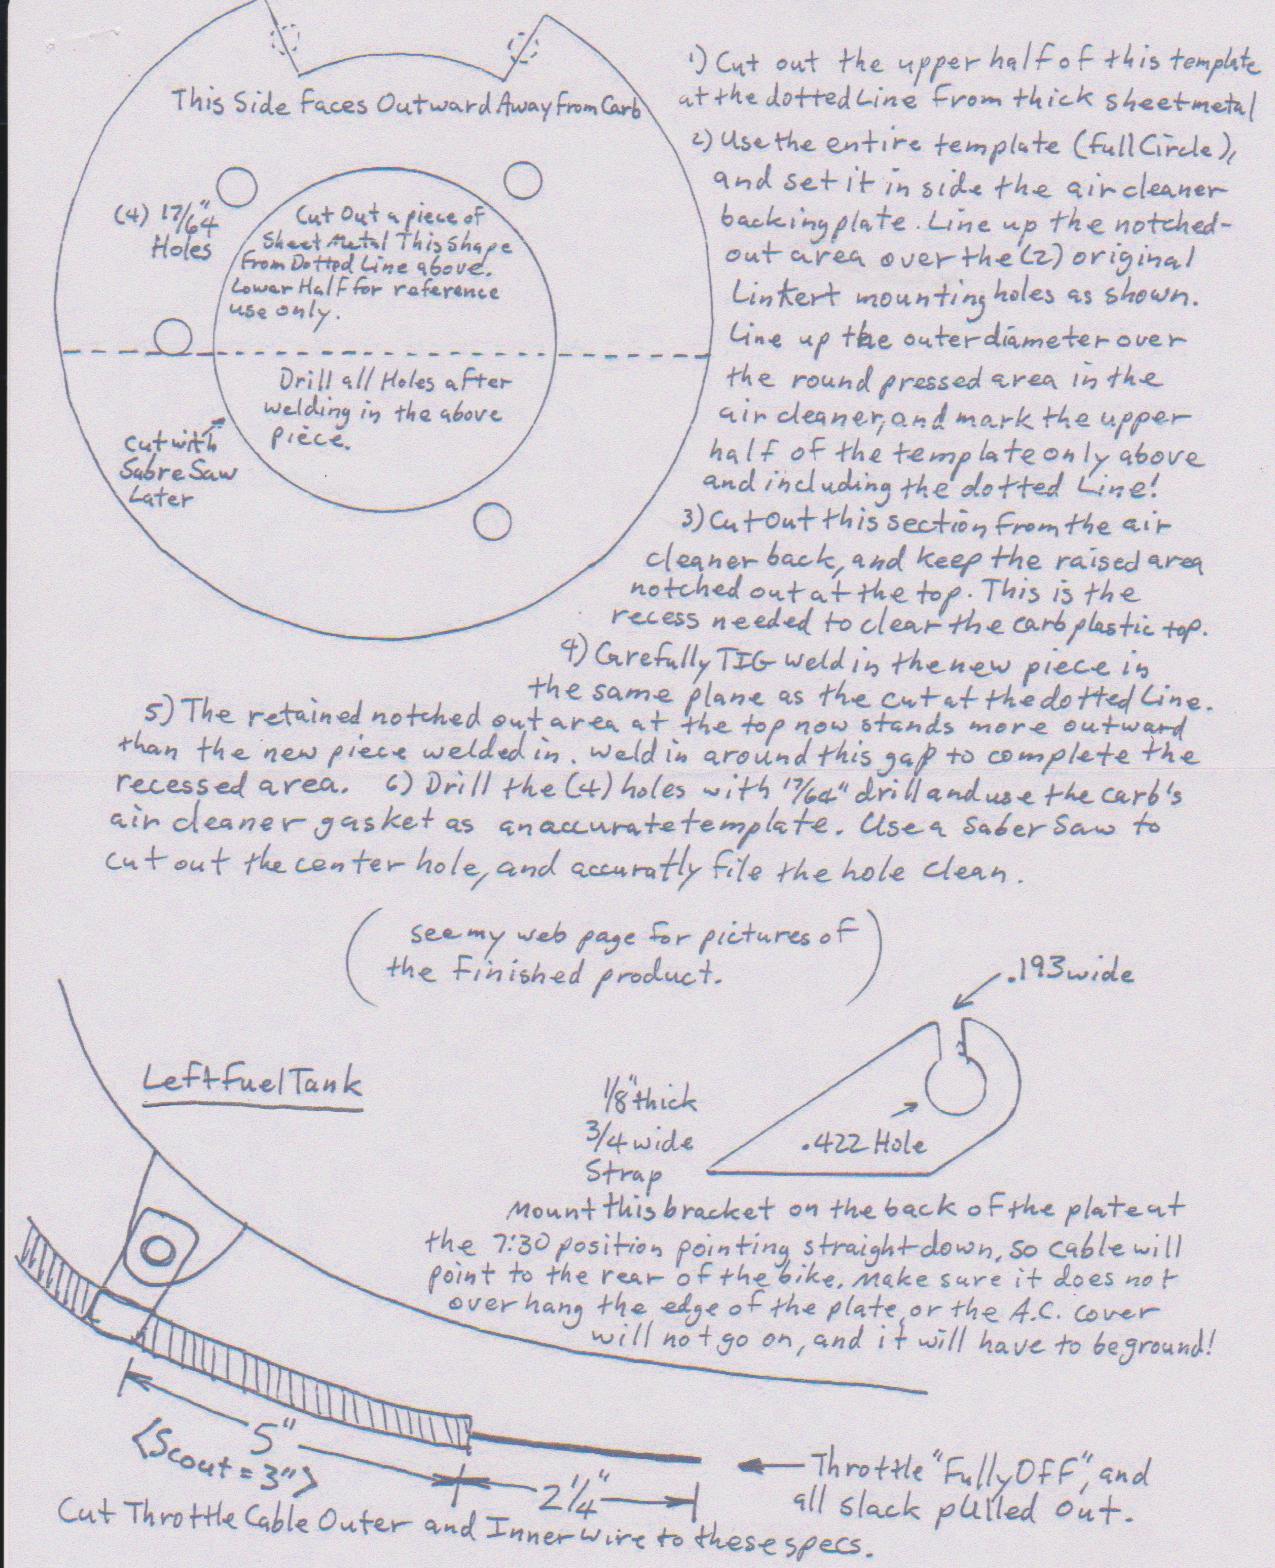 This Side Faces Outward Away From Carb
(4) 17/64"
Holes
Cut Out a piece of
Sheet Metal This Shape
From Dotted Line above.
Lower Half for reference
use only.
Drill all Holes after
welding in the above
piece.
Cut with
Sabre Saw
Later
1) Cut out the upper half of this template
at the dotted Line From thick sheetmetal
2) Use the entire template (full Circle),
and set it in side the air cleaner
backing plate. Line up the notched-
out area over the (2) original
Linkert mounting holes as shown.
Line up the outer diameter over
the round pressed area in the
air cleaner, and mark the upper
half of the template only above
and including the dotted Line!
3) Cut Out this section from the air
cleaner back, and keep the raised area
notched out at the top. This is the
recess needed to clear the carb plastic top.
4) Carefully TIG weld in the new piece in
the same plane as the cut at the dotted Line.
5) The retained notched out area at the top now stands more outward
than the new piece welded in. Weld in around this gap to complete the
recessed area. 6) Drill the (4) holes with 17/64" drill and use the carb's
air cleaner gasket as an accurate template. Use a Saber Saw to
cut out the center hole, and accuratly file the hole clean.
(see my web page for pictures of
the finished product.)
.193 wide
Left Fuel Tank
1/8" thick
3/4 wide
Strap
.422 Hole
Mount this bracket on the back of the plate at
the 7:30 position pointing straight down, so cable will
point to the rear of the bike. Make sure it does not
over hang the edge of the plate, or the A.C. cover
will not go on, and it will have to be ground!
5"
<Scout = 3">
2 1/4"
Throttle "Fully Off", and
all slack pulled out.
Cut Throttle Cable Outer and Inner wire to these specs.